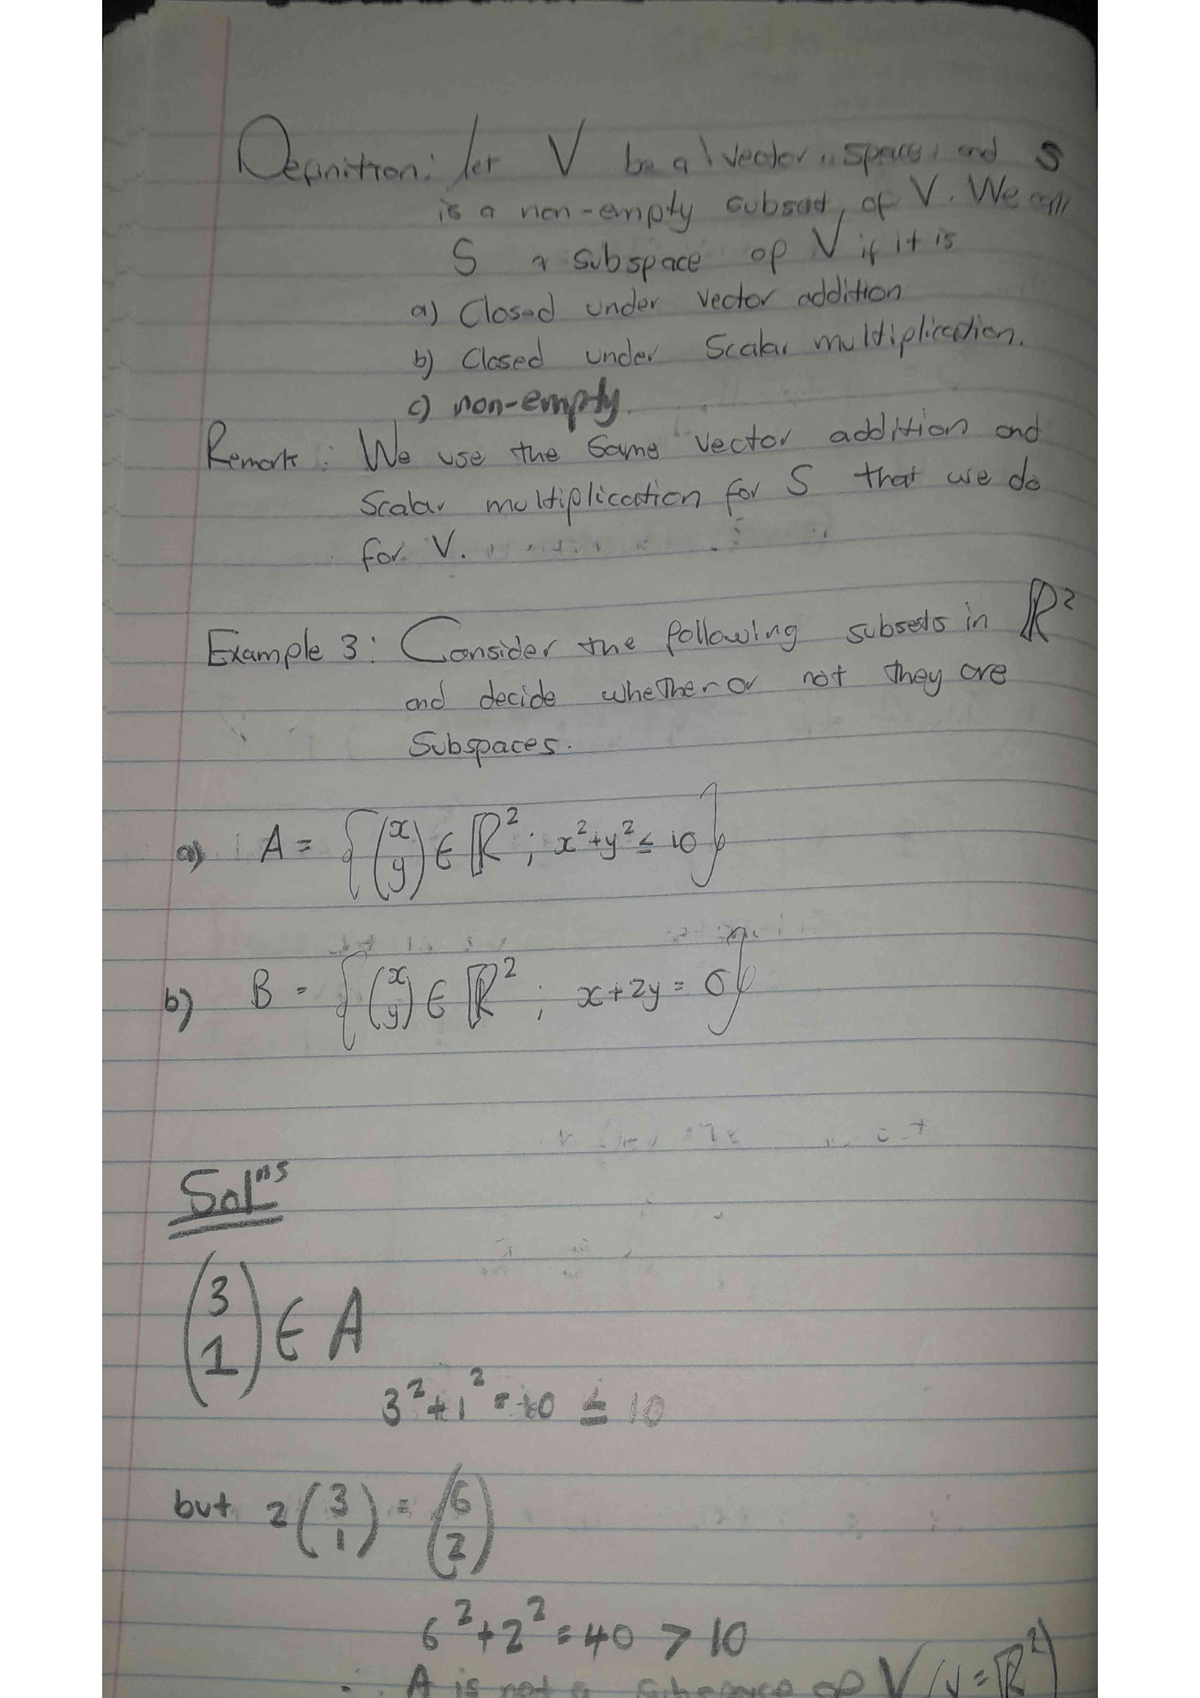 Definition: let V be a vector space, and S
is a non-empty subset, of V. We call
S a subspace of V if it is
a) Closed under vector addition
b) Closed under Scalar multiplication.
c) non-empty.
Remark: We use the same vector addition and
Scalar multiplication for S that we do
for V.
Example 3: Consider the following subsets in ℝ²
and decide whether or not they are
Subspaces.
a) A = {(x y) ∈ ℝ² ; x²+y² ≤ 10}
b) B = {(x y) ∈ ℝ² ; x+2y = 0}
Solⁿˢ
(3 1) ∈ A
3²+1² = 10 ≤ 10
but 2(3 1) = (6 2)
6²+2² = 40 > 10
∴ A is not a subspace of V (V=ℝ²)